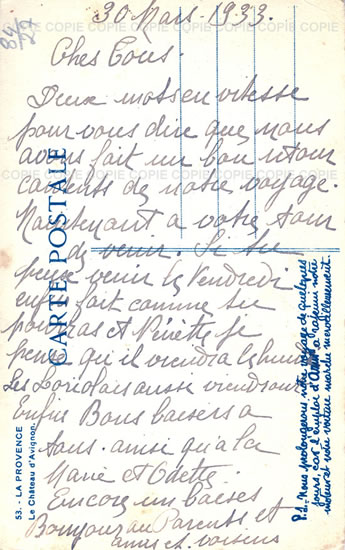 89
27
30 Mars. 1933.
Chers Tous.
Deux mots en vitesse
pour vous dire que nous
avons fait un bon retour
contents de notre voyage.
Maintenant a votre tour
de venir. Si tu
peux venir le Vendredi
enfin fait comme tu
pourras et Ninette je
pense qu'il viendra le lundi
Les Loriolais aussi viendront
Enfin Bons baisers a
tous. ainsi qu'a la
Marie et Odette.
Encore un baiser
Bonjour au Parents et
amis et voisins
CARTE POSTALE
53. - LA PROVENCE
Le Château d'Avignon.
P.S. Nous prolongerons notre voyage de quelques
jours, car l'emploi d' a rajeuni notre
moteur et notre voiture marche merveilleusement.
COPIE COPIE COPIE COPIE COPIE COPIE